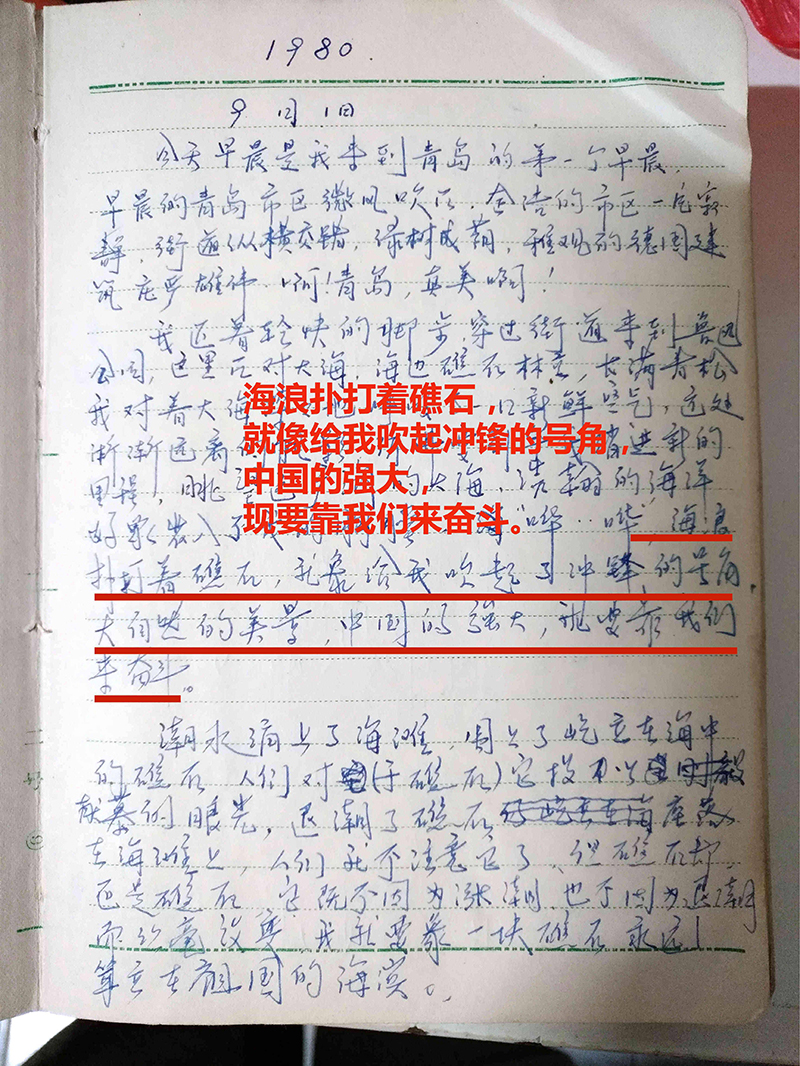 1980.
9月1日
今天早晨是我来到青岛的第一个早晨,
早晨的青岛市区微风吹 , 的市区一片寂
静,街道纵横交错,绿树成荫,雅观的德国建
筑庄严雄伟 啊!青岛,真美啊!
我迈着轻快的脚步,穿过街道来到鲁迅
公园,这里 对大海,海边礁石林立,长满青松
我对着大海 一口新鲜空气,远处
渐渐远离 进 的
里程, 眺 的大海,浩翰的海洋
好象装入了我的 "哗…哗",海浪
海浪扑打着礁石,
就像给我吹起冲锋的号角,
中国的强大,
现要靠我们来奋斗。
扑打着礁石,就象给我吹起了冲锋的号角
大自 的美景,中国的强大,就要靠我们
来奋斗。
潮水涌上了海滩,围上了屹立在海中
的礁石 人们对 (于礁石)它投 以
慕的眼光,退潮了礁石 座落
在海滩上,人们就不注意它了,但礁石却
还是礁石,它既不因为涨潮,也不因为退潮
而丝毫改变,我就要象一块礁石永远
耸立在祖国的海滨。